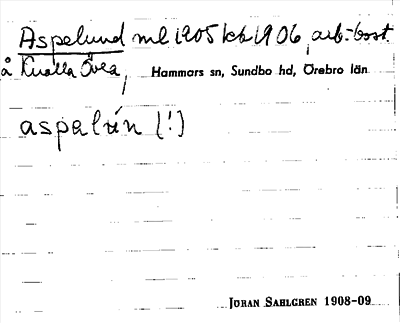 Aspelund ml 1905 kb 1906, arb.-bost.
å Knalla Övra, Hammars sn, Sundbo hd, Örebro län
aspelún (!)
JOHAN SAHLGREN 1908-09